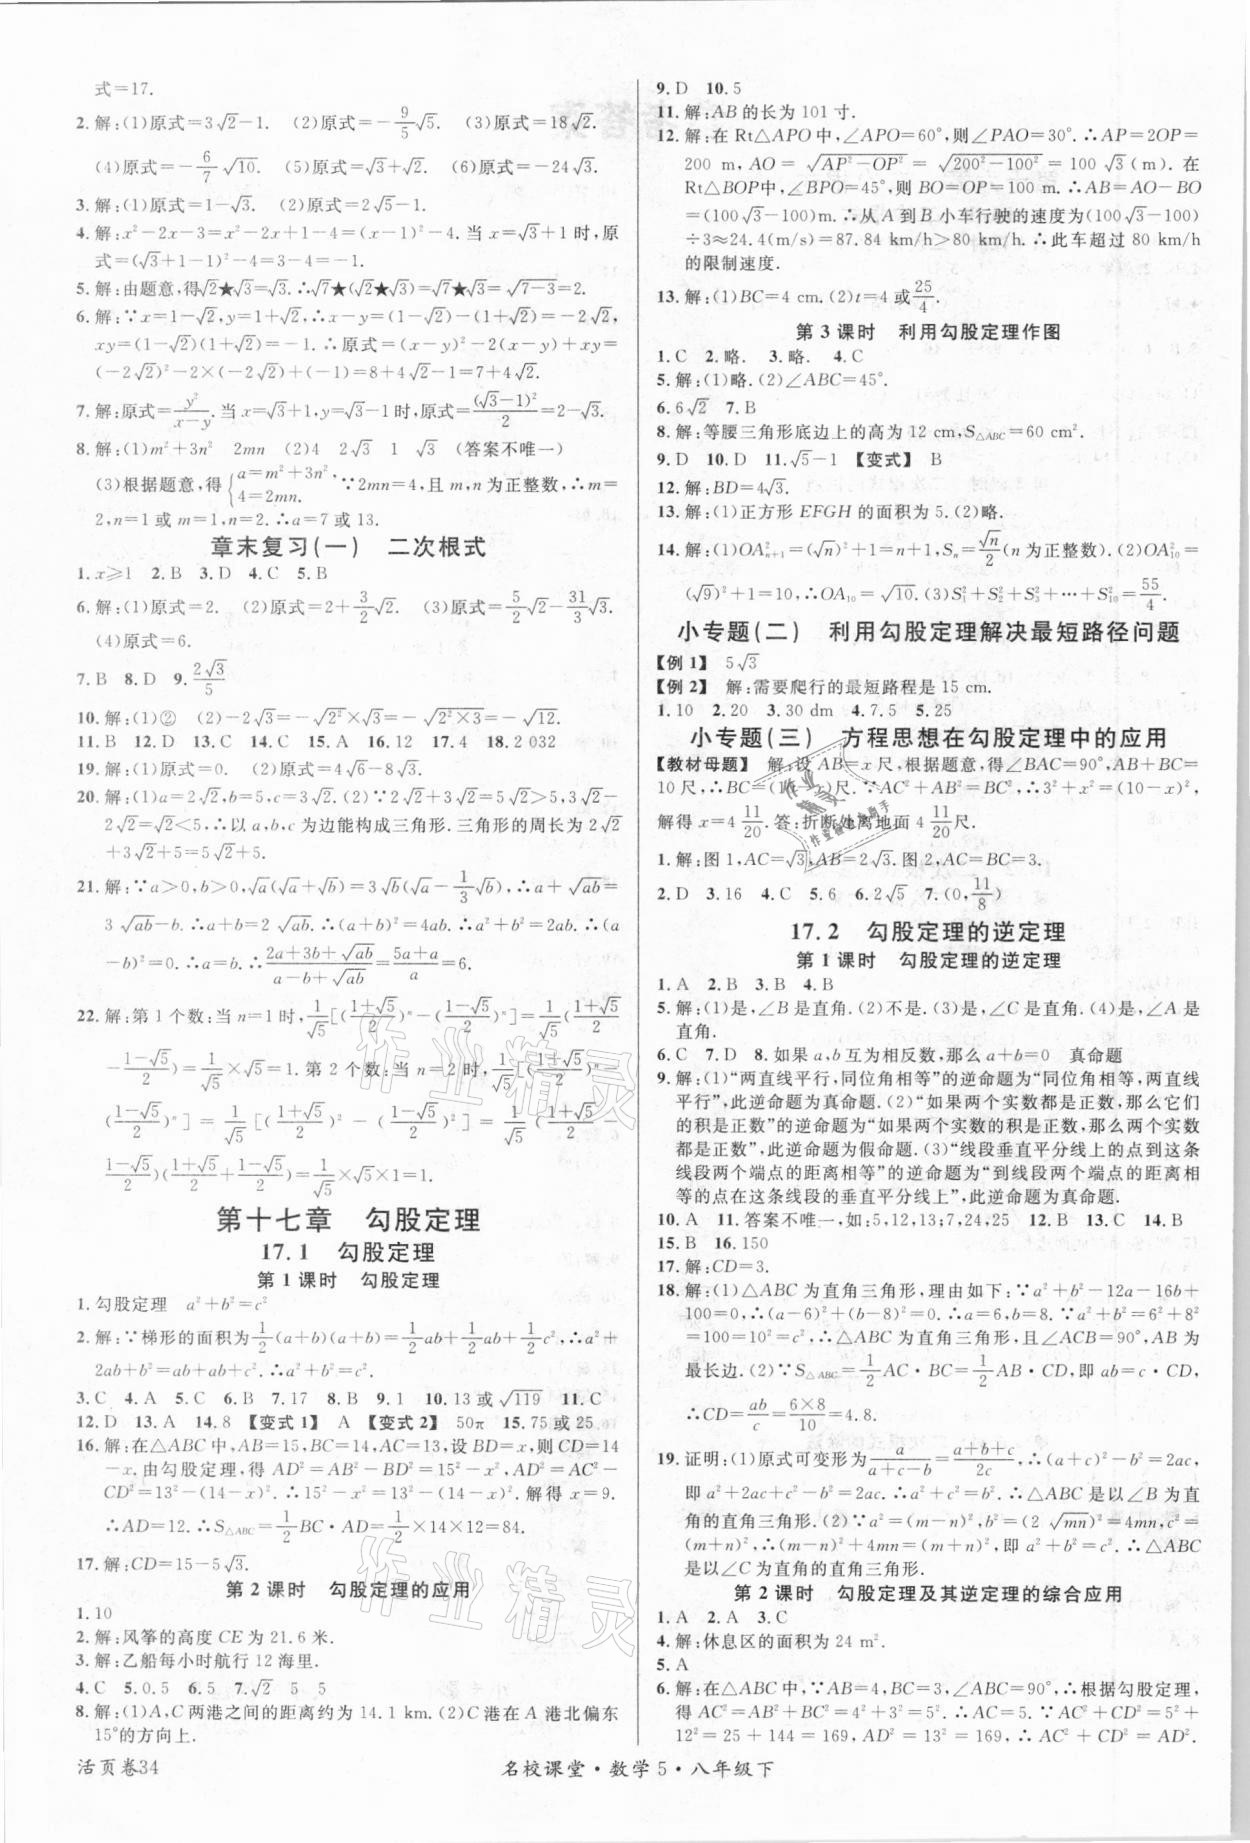 式=17.
2.解:(1)原式=3√2-1. (2)原式=-9/5√5. (3)原式=18√2.
(4)原式=-6/7√10. (5)原式=√3+√2. (6)原式=-24√3.
3.解:(1)原式=1-√3. (2)原式=2√5-1.
4.解:x²-2x-3=x²-2x+1-4=(x-1)²-4.当x=√3+1时,原
式=(√3+1-1)²-4=3-4=-1.
5.解:由题意,得√2★√3=√3.∴√7★(√2★√3)=√7★√3=√(7-3)=2.
6.解:∵x=1-√2,y=1+√2,∴x-y=(1-√2)-(1+√2)=-2√2,
xy=(1-√2)(1+√2)=-1.∴原式=(x-y)²-2(x-y)+xy=
(-2√2)²-2×(-2√2)+(-1)=8+4√2-1=7+4√2.
7.解:原式=y²/(x-y).当x=√3+1,y=√3-1时,原式=(√3-1)²/2=2-√3.
8.解:(1)m²+3n² 2mn (2)4 2√3 1 √3 (答案不唯一)
(3)根据题意,得{a=m²+3n², 4=2mn. ∵2mn=4,且m,n为正整数,∴m=
2,n=1或m=1,n=2.∴a=7或13.
章末复习(一) 二次根式
1.x≥1 2.B 3.D 4.C 5.B
6.解:(1)原式=2. (2)原式=2+3/2√2. (3)原式=5/2√2-31/3√3.
(4)原式=6.
7.B 8.D 9.2√3/5
10.解:(1)② (2)-2√3=-√2²×√3=-√(2²×3)=-√12.
11.B 12.D 13.C 14.C 15.A 16.12 17.4 18.2 032
19.解:(1)原式=0. (2)原式=4√6-8√3.
20.解:(1)a=2√2,b=5,c=3√2.(2)∵2√2+3√2=5√2>5,3√2-
2√2=√2<5,∴以a,b,c为边能构成三角形.三角形的周长为2√2
+3√2+5=5√2+5.
21.解:∵a>0,b>0,√a(√a+√b)=3√b(√a-1/3√b),∴a+√ab=
3√ab-b.∴a+b=2√ab.∴(a+b)²=4ab.∴a²+b²=2ab.∴(a
-b)²=0.∴a=b.∴(2a+3b+√ab)/(a-b+√ab)=(5a+a)/a=6.
22.解:第1个数:当n=1时,1/√5[((1+√5)/2)ⁿ-((1-√5)/2)ⁿ]=1/√5((1+√5)/2-
(1-√5)/2)=1/√5×√5=1.第2个数:当n=2时,1/√5[((1+√5)/2)ⁿ-
((1-√5)/2)ⁿ]=1/√5[((1+√5)/2)²-((1-√5)/2)²]=1/√5((1+√5)/2-
(1-√5)/2)((1+√5)/2+(1-√5)/2)=1/√5×√5×1=1.
第十七章 勾股定理
17.1 勾股定理
第1课时 勾股定理
1.勾股定理 a²+b²=c²
2.解:∵梯形的面积为1/2(a+b)(a+b)=1/2ab+1/2ab+1/2c²,∴a²+
2ab+b²=ab+ab+c².∴a²+b²=c².
3.C 4.A 5.C 6.B 7.17 8.B 9.1 10.13或√119 11.C
12.D 13.A 14.8 【变式1】 A 【变式2】 50π 15.75或25
16.解:在△ABC中,AB=15,BC=14,AC=13,设BD=x,则CD=14
-x.由勾股定理,得AD²=AB²-BD²=15²-x²,AD²=AC²-
CD²=13²-(14-x)².∴15²-x²=13²-(14-x)².解得x=9.
∴AD=12.∴S△ABC=1/2BC·AD=1/2×14×12=84.
17.解:CD=15-5√3.
第2课时 勾股定理的应用
1.10
2.解:风筝的高度CE为21.6米.
3.解:乙船每小时航行12海里.
4.C 5.0.5 6.5 7.√2 5 5
8.解:(1)A,C两港之间的距离约为14.1 km.(2)C港在A港北偏东
15°的方向上.
9.D 10.5
11.解:AB的长为101寸.
12.解:在Rt△APO中,∠APO=60°,则∠PAO=30°.∴AP=2OP=
200 m,AO=√(AP²-OP²)=√(200²-100²)=100√3(m).在
Rt△BOP中,∠BPO=45°,则BO=OP=100 m.∴AB=AO-BO
=(100√3-100)m.∴从A到B小车行驶的速度为(100√3-100)
÷3≈24.4(m/s)=87.84 km/h>80 km/h.∴此车超过80 km/h
的限制速度.
13.解:(1)BC=4 cm.(2)t=4或25/4.
第3课时 利用勾股定理作图
1.C 2.略. 3.略. 4.C
5.解:(1)略.(2)∠ABC=45°.
6.6√2 7.B
8.解:等腰三角形底边上的高为12 cm,S△ABC=60 cm².
9.D 10.D 11.√5-1 【变式】 B
12.解:BD=4√3.
13.解:(1)正方形EFGH的面积为5.(2)略.
14.解:(1)OA²ₙ₊₁=(√n)²+1=n+1,Sₙ=√n/2(n为正整数).(2)OA²₁₀=
(√9)²+1=10,∴OA₁₀=√10.(3)S₁²+S₂²+S₃²+…+S₁₀²=55/4.
小专题(二) 利用勾股定理解决最短路径问题
【例1】 5√3
【例2】 解:需要爬行的最短路程是15 cm.
1.10 2.20 3.30 dm 4.7.5 5.25
小专题(三) 方程思想在勾股定理中的应用
【教材母题】 解:设AB=x尺,根据题意,得∠BAC=90°,AB+BC=
10尺,∴BC=(10-x)尺.∵AC²+AB²=BC²,∴3²+x²=(10-x)²,
解得x=4 11/20.答:折断处离地面4 11/20尺.
1.解:图1,AC=√3,AB=2.图2,AC=BC=3.
2.D 3.16 4.C 5.6 6.2√5 7.(0,11/8)
17.2 勾股定理的逆定理
第1课时 勾股定理的逆定理
1.A 2.B 3.B 4.B
5.解:(1)是,∠B是直角.(2)不是.(3)是,∠C是直角.(4)是,∠A是
直角.
6.C 7.D 8.如果a,b互为相反数,那么a+b=0 真命题
9.解:(1)“两直线平行,同位角相等”的逆命题为“同位角相等,两直线
平行”,此逆命题为真命题.(2)“如果两个实数都是正数,那么它们
的积是正数”的逆命题为“如果两个实数的积是正数,那么两个实数
都是正数”,此逆命题为假命题.(3)“线段垂直平分线上的点到这条
线段两个端点的距离相等”的逆命题为“到线段两个端点的距离相
等的点在这条线段的垂直平分线上”,此逆命题为真命题.
10.A 11.答案不唯一,如:5,12,13;7,24,25 12.B 13.C 14.B
15.B 16.150
17.解:CD=3.
18.解:(1)△ABC为直角三角形,理由如下:∵a²+b²-12a-16b+
100=0,∴(a-6)²+(b-8)²=0.∴a=6,b=8.∵a²+b²=6²+8²
=100=10²=c²,∴△ABC为直角三角形,且∠ACB=90°,AB为
最长边.(2)∵S△ABC=1/2AC·BC=1/2AB·CD,即ab=c·CD,
∴CD=ab/c=6×8/10=4.8.
19.证明:(1)原式可变形为a/(a+c-b)=(a+b+c)/2c,∴(a+c)²-b²=2ac,
即a²+2ac+c²-b²=2ac.∴a²+c²=b².∴△ABC是以∠B为直
角的直角三角形.(2)∵a²=(m-n)²,b²=(2√mn)²=4mn,c²=
(m+n)²,∴(m-n)²+4mn=(m+n)²,即a²+b²=c².∴△ABC
是以∠C为直角的直角三角形.
第2课时 勾股定理及其逆定理的综合应用
1.A 2.A 3.C
4.解:休息区的面积为24 m².
5.A
6.解:在△ABC中,∵AB=4,BC=3,∠ABC=90°,∴根据勾股定理,
得AC²=AB²+BC²=4²+3²=5².∴AC=5.∵AC²+CD²=5²+
12²=25+144=169,AD²=13²=169,∴AC²+CD²=AD².
活页卷34
名校课堂·数学5·八年级下
作业精灵
作业精灵